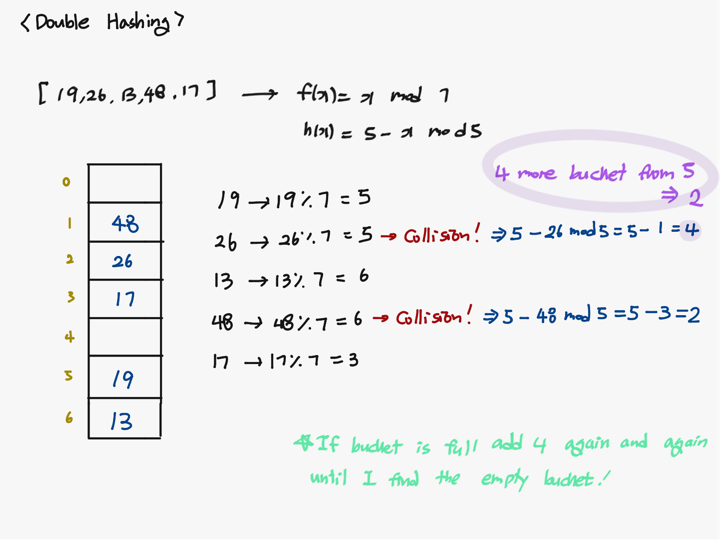 <Double Hashing>
[19,26,13,48,17] → f(x) = x mod 7
h(x) = 5 - x mod 5
4 more bucket from 5
⇒ 2
0
1 48
2 26
3 17
4
5 19
6 13
19 → 19 % 7 = 5
26 → 26 % 7 = 5 → Collision! ⇒ 5 - 26 mod 5 = 5 - 1 = 4
13 → 13 % 7 = 6
48 → 48 % 7 = 6 → Collision! ⇒ 5 - 48 mod 5 = 5 - 3 = 2
17 → 17 % 7 = 3
* If bucket is full add 4 again and again
until I find the empty bucket!